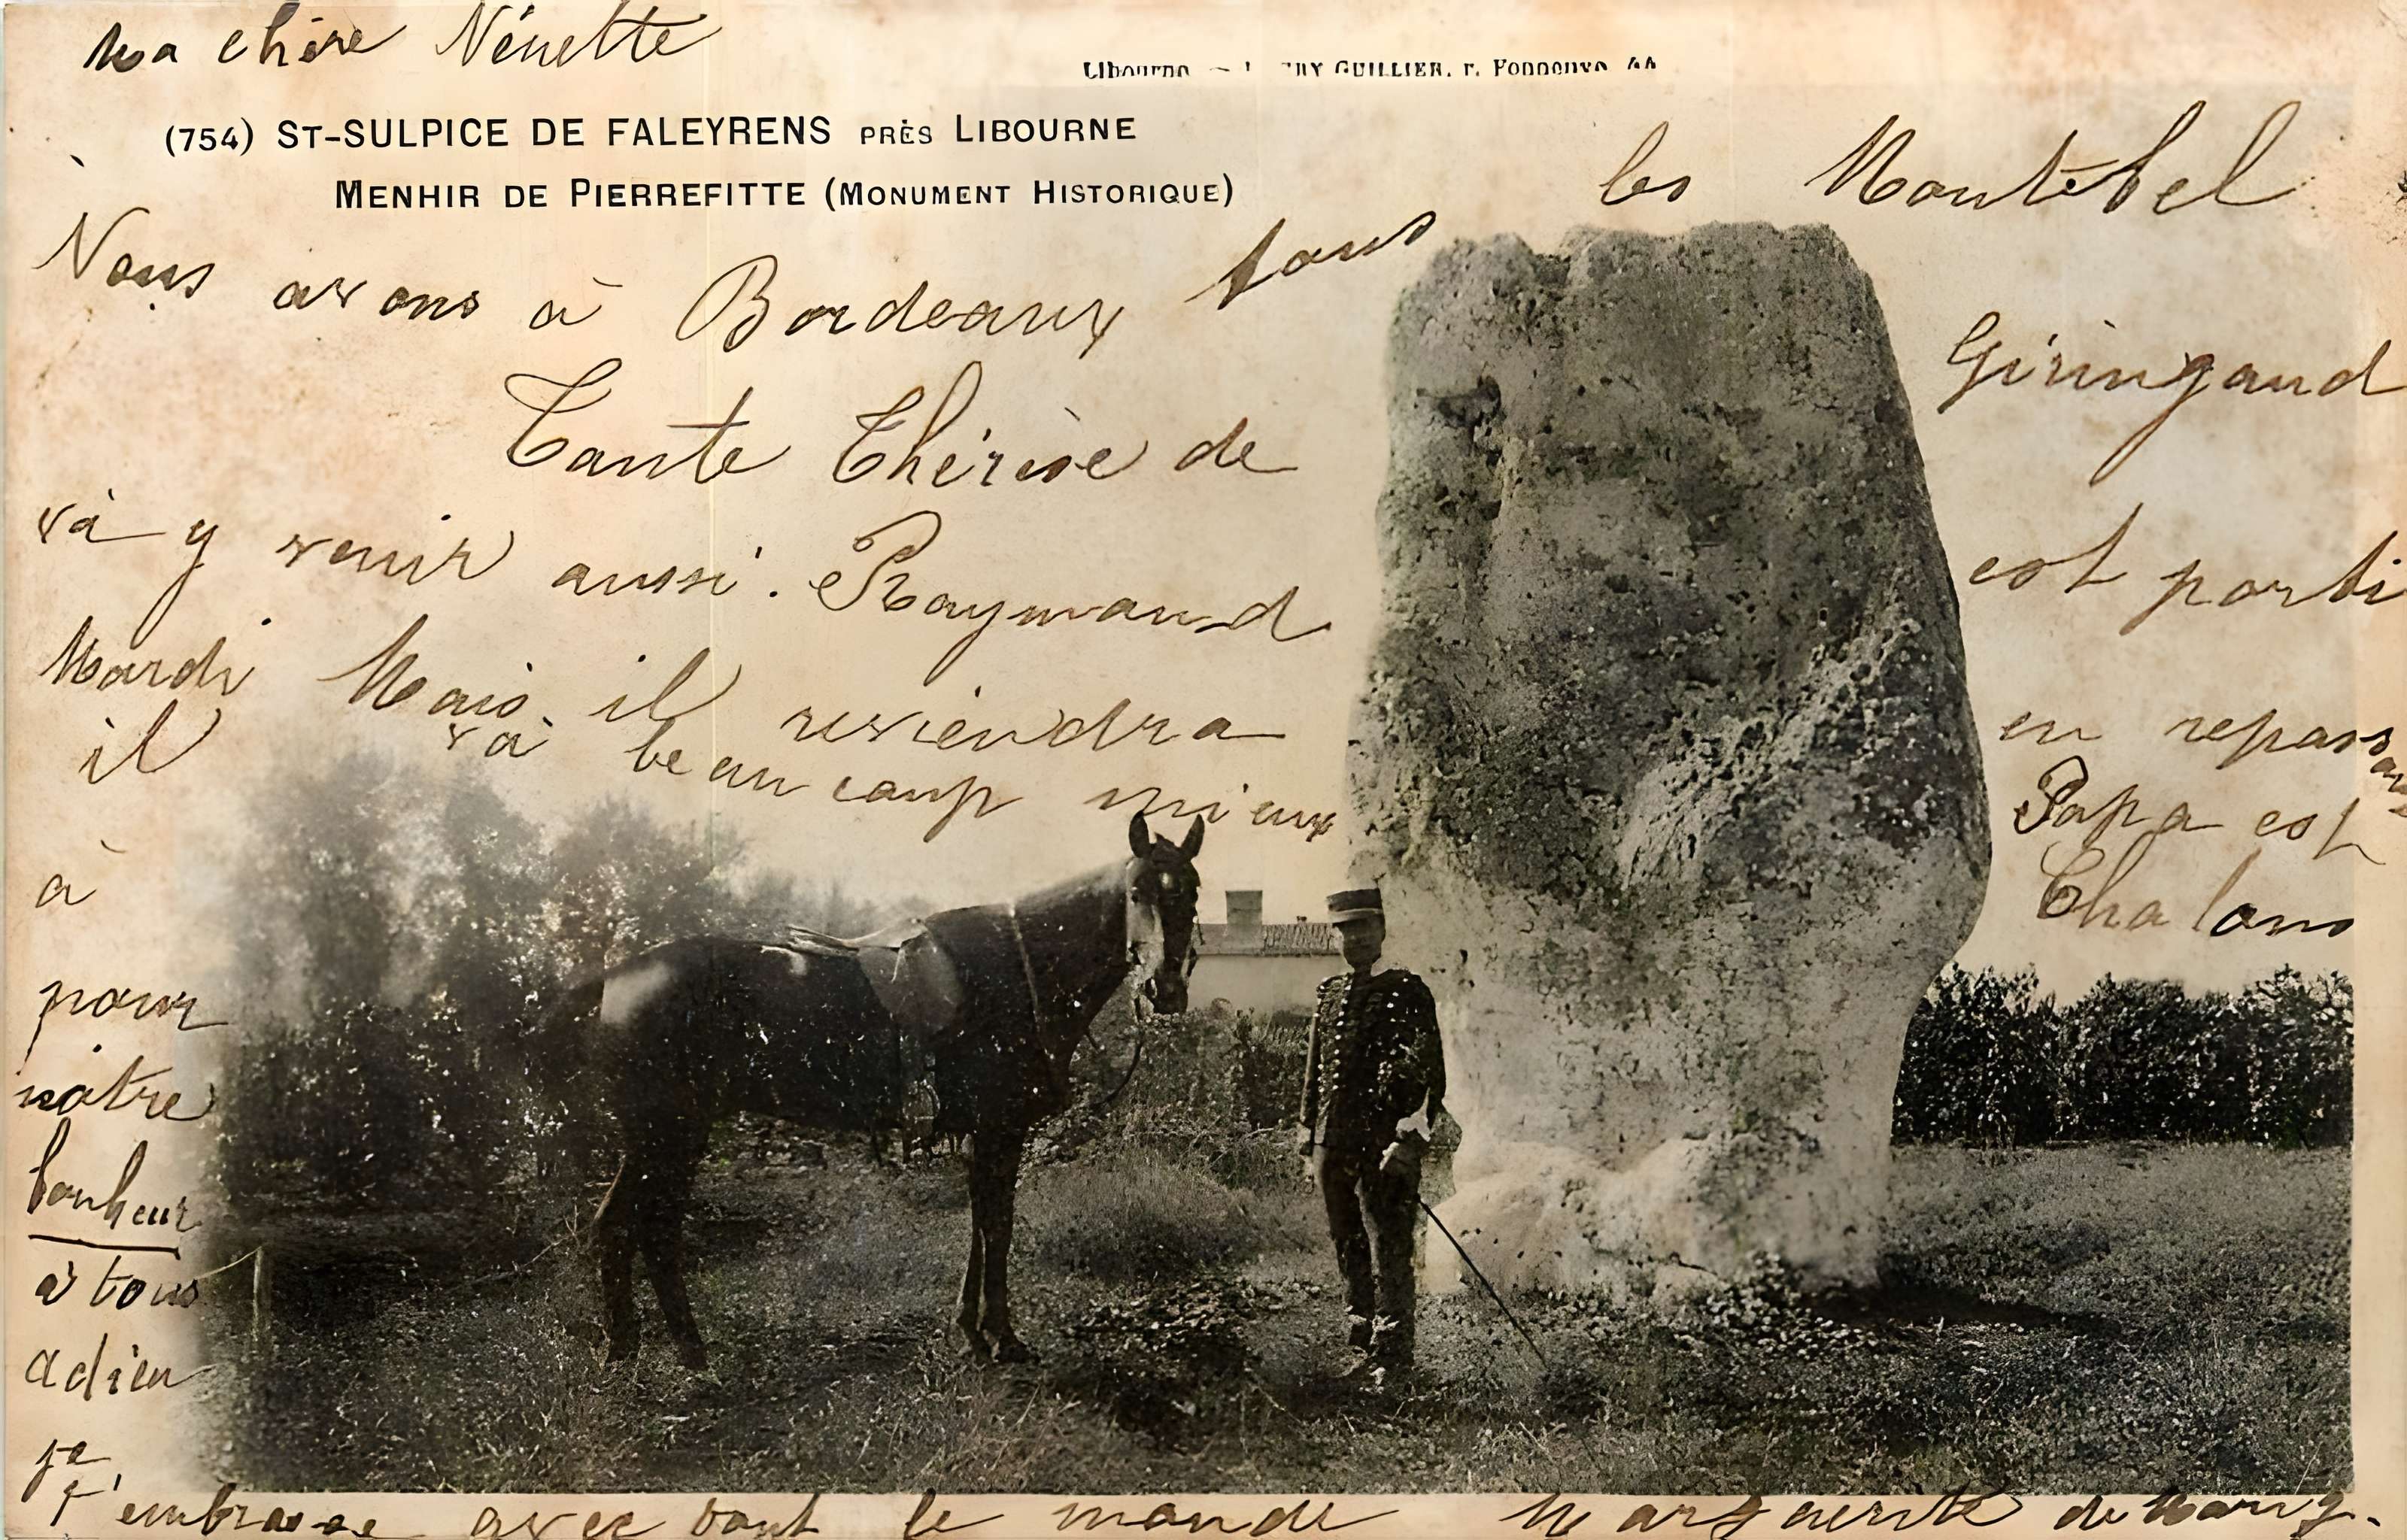 Ma chère Nénette
Libourne — GUILLIER, r.
(754) ST-SULPICE DE FALEYRENS PRÈS LIBOURNE
MENHIR DE PIERREFITTE (MONUMENT HISTORIQUE)
Nous avons à Bordeaux tous les Montébel
Tante Thérèse de Giringaud
và y venir aussi. Raymond est parti
Mardi Mais il reviendra en repassant
il và beaucoup mieux Papa est
à Chalons
pour
nôtre
bonheur
à tous
adieu
je
t'embrasse avec tout le monde Marguerite de